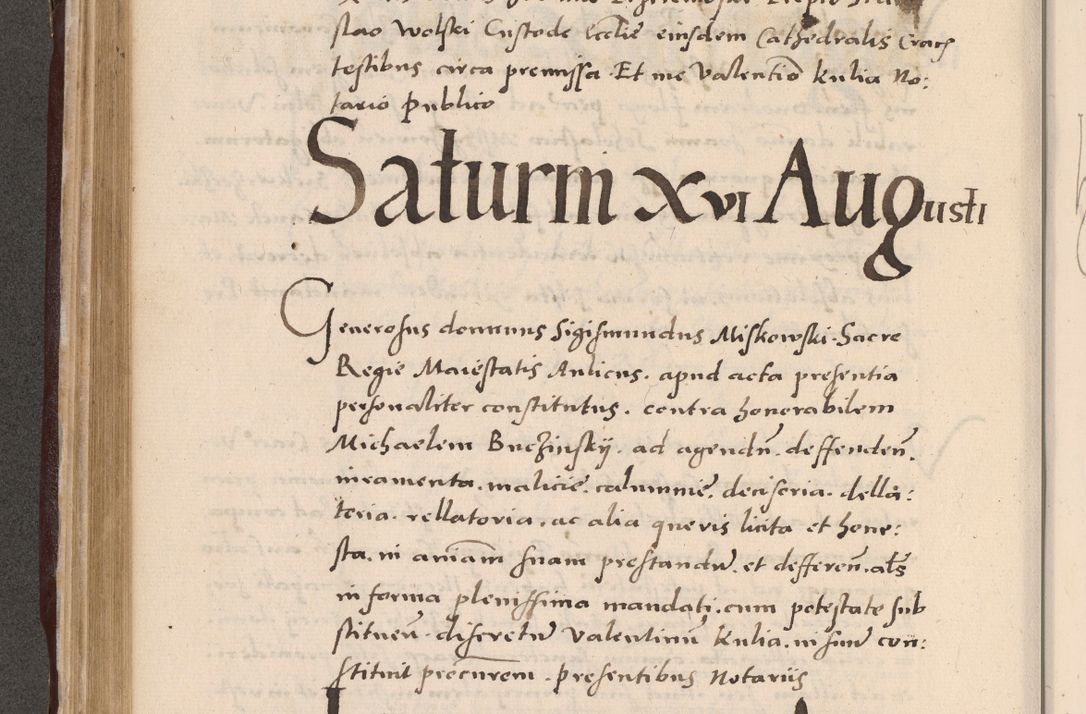 slao Wolski Custode Ecclie eiusdem Cathedralis Crach
testibus circa premissa. Et me Valentio Kulia No:
tario publico
Saturni XVI Augusti
Generosus dominus Sigismundus Miskowski. Sacre
Regie Maiestatis Aulicus. apud acta presentia
personaliter constitutus. contra honorabilem
Michaelem Buczinskij. ad agendū. deffendeñ.
iuramenta. malicie. calumnie. decisoria. della:
toria. rellatoria. ac alia queuis licita et hone:
sta. in aniam suam prestandū. et deffereñ. als
in forma plenissima mandati. cum potestate sub
stitueñ. discretū Valentinū Kulia. in suū con:
stituit procurem. presentibus Notariis